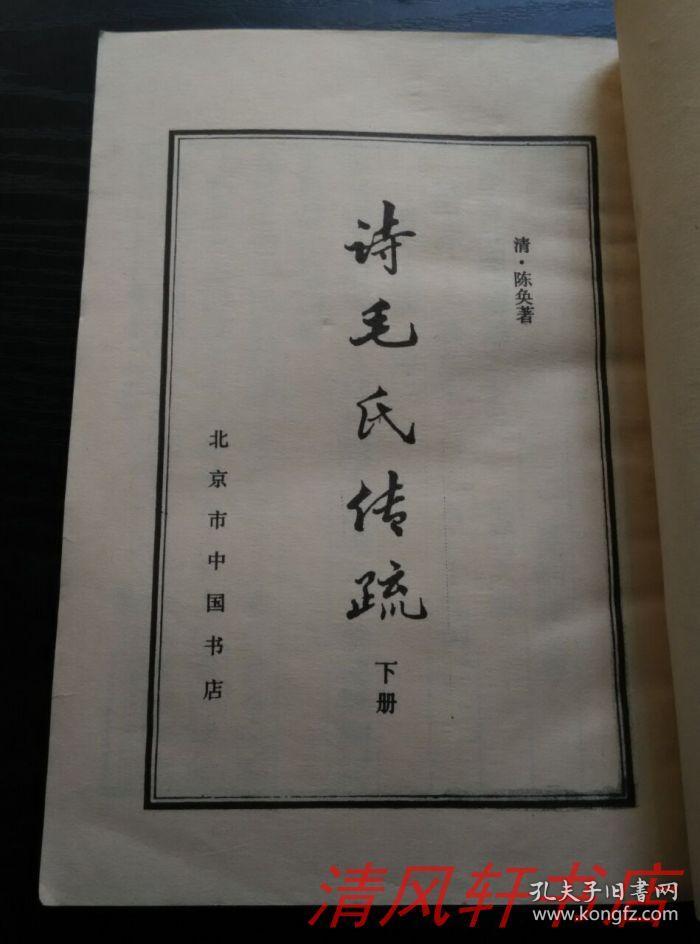 清·陈奂著
诗毛氏传疏
下册
北京市中国书店
清风轩书店
孔夫子旧书网
www.kongfz.com